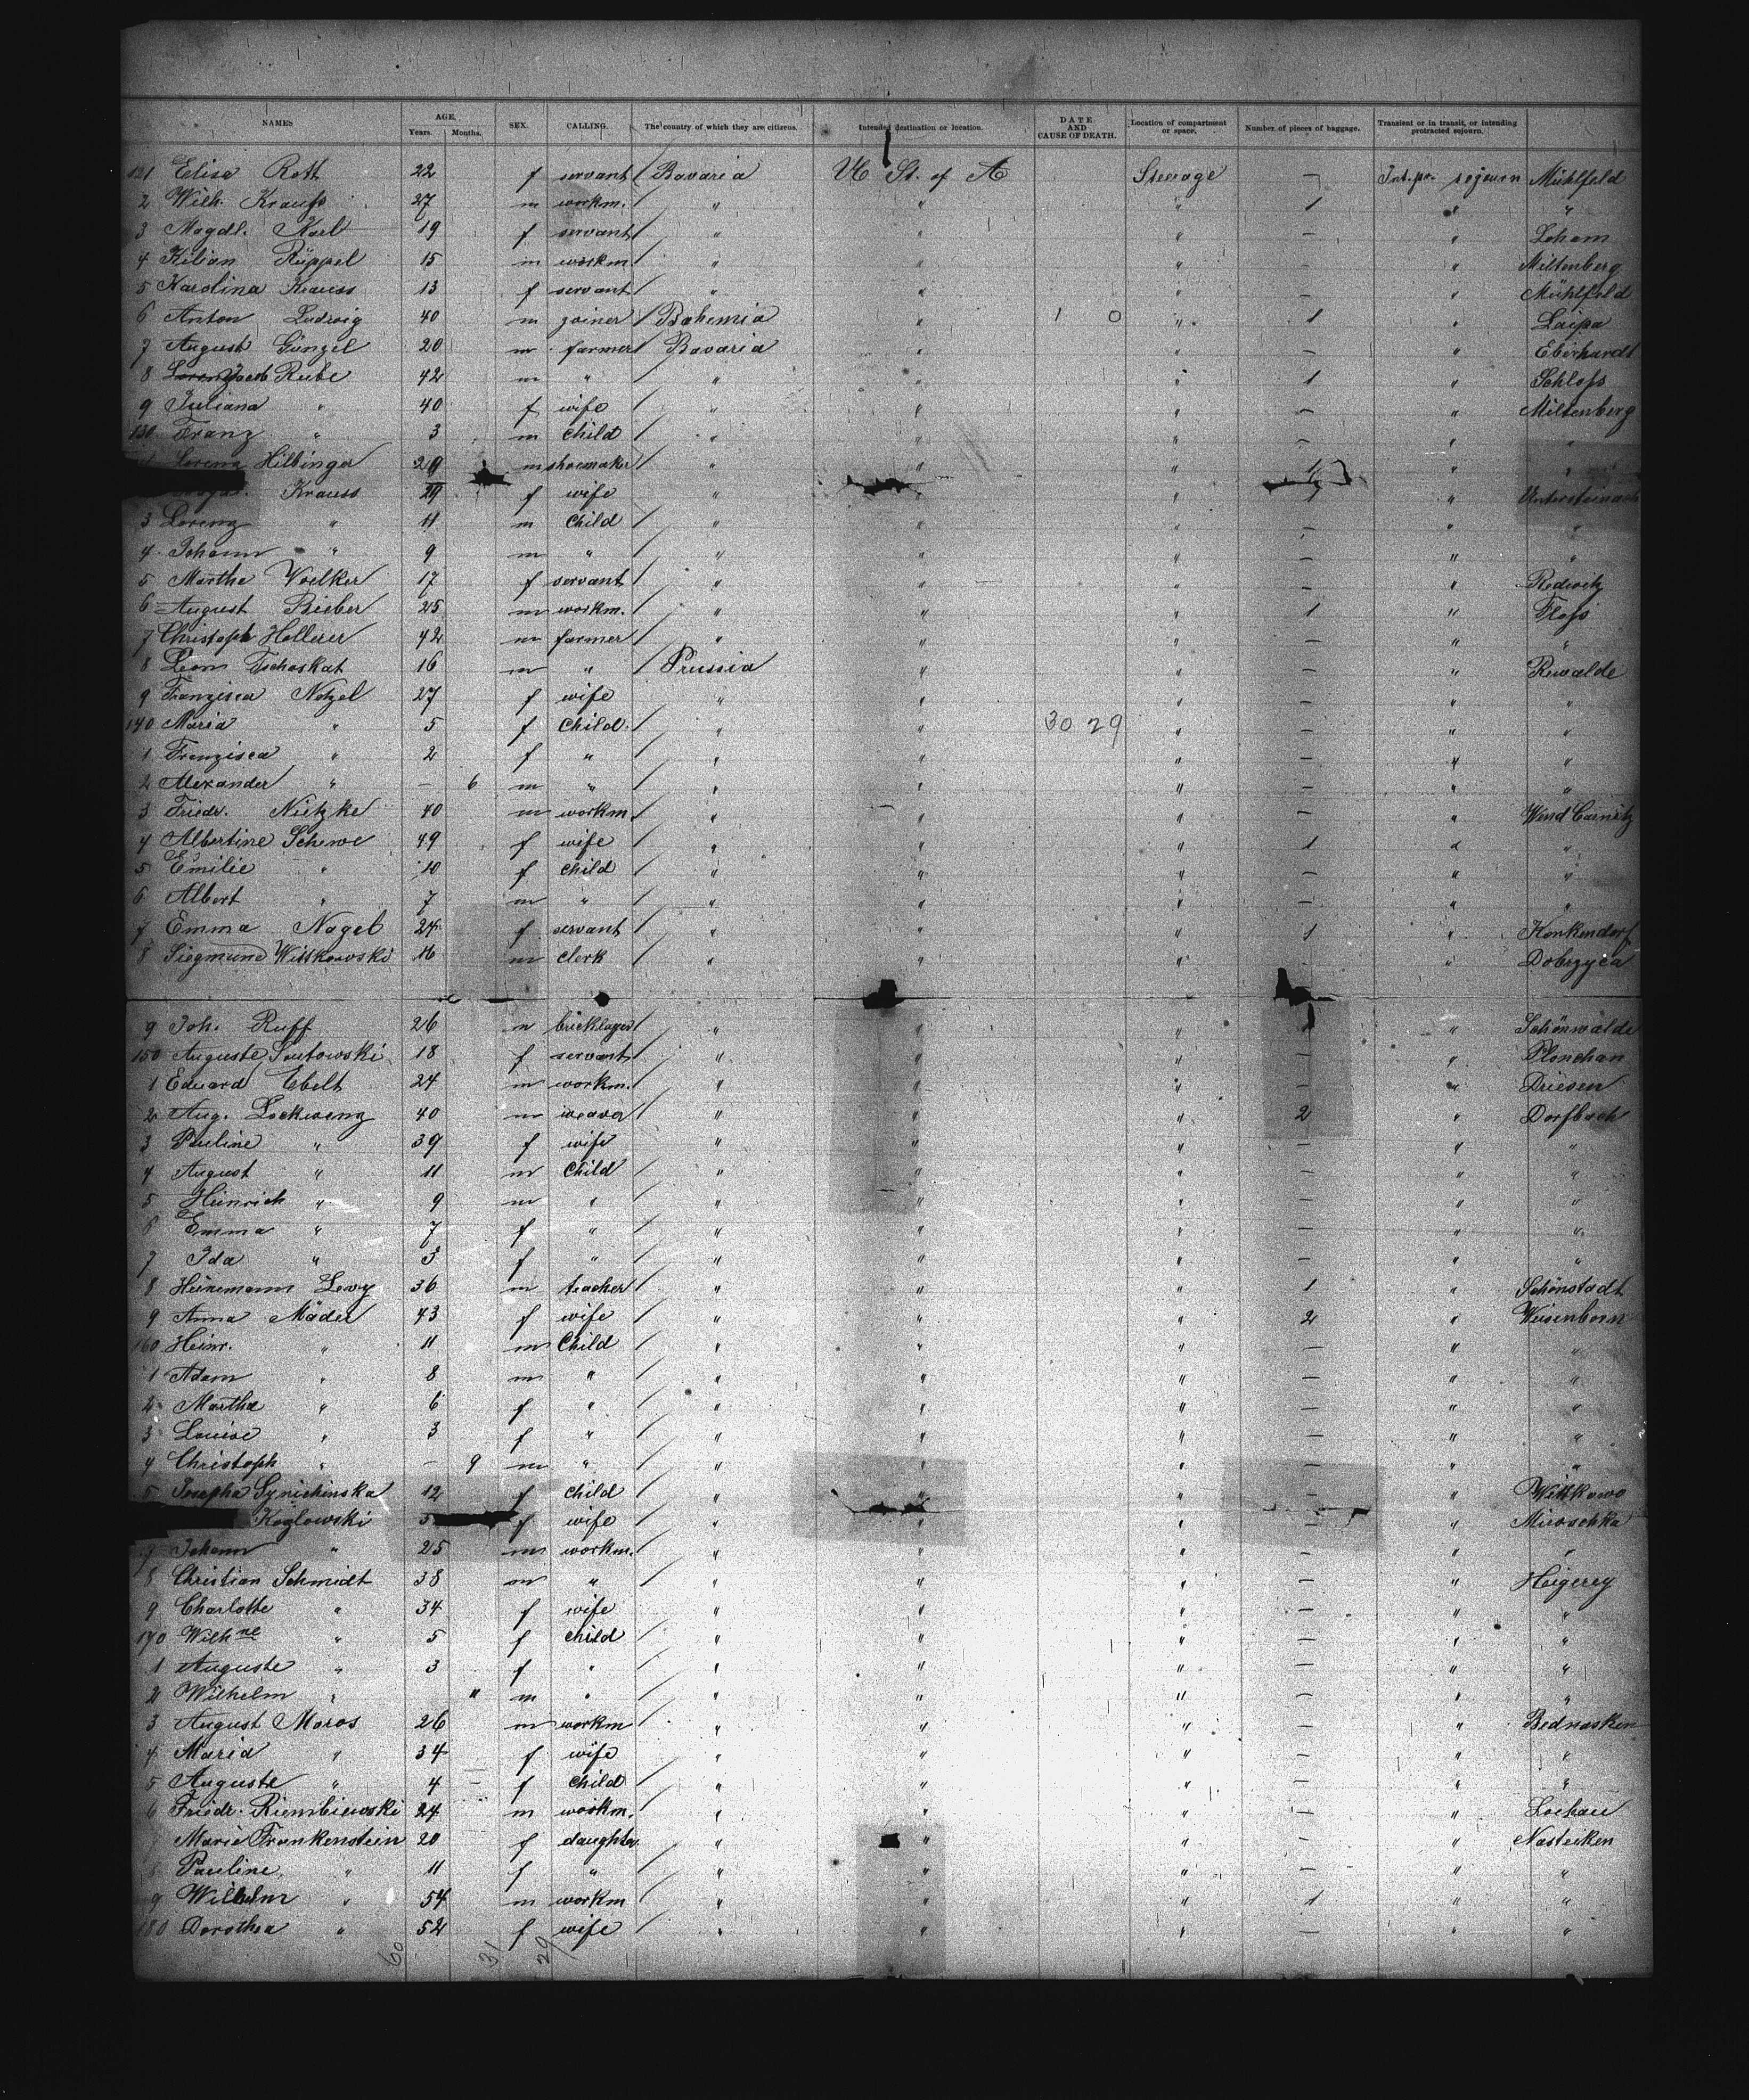 NAMES AGE, Years. Months. SEX. CALLING. The country of which they are citizens. Intended destination or location. DATE AND CAUSE OF DEATH. Location of compartment or space. Number of pieces of baggage. Transient or in transit, or intending protracted sojourn.
121 Elise Roth 22 f servant / Bavaria U St. of A Steerage — Int. pr. sojourn Mühlfeld
2 Wilh. Krauss 27 m workm. / " " " 1 " "
3 Magdl. Karl 19 f servant / " " " — " Loham
4 Kilian Rüppel 15 m workm / " " " — " Miltenberg
5 Karolina Krauss 13 f servant / " " " — " Mühlfeld
6 Anton Ludwig 40 m joiner / Bohemia " 1 0 " 1 " Laipa
7 August Günzel 20 m farmer / Bavaria " " — " Eberhardt
8 Jacob Rube 42 m " / " " " 1 " Schloss
9 Juliana " 40 f wife / " " " — " Miltenberg
130 Franz " 3 m child / " " " — " "
Lorenz Hilbinger 29 m shoemaker / " " " 1 " "
Krauss 29 f wife / " " " " Untersteinach
3 Lorenz " 11 m Child / " " " — " "
4 Johann " 9 m " / " " " — " "
5 Martha Voelker 17 f servant / " " " — " Redwitz
6 August Bieber 25 m workm. / " " " 1 " Floss
7 Christoph Hollerer 42 m farmer / " " " — " "
8 Leon Tschoskat 16 m " / Prussia " " — " Rewalde
9 Franzisca Notzel 27 f wife / " " " — " "
140 Maria " 5 f Child. / " " 30 29 " — " "
1 Franzisca " 2 f " / " " " — " "
2 Alexander " — 6 m " / " " " — " "
3 Friedr. Nietzke 40 m workm. / " " " — " Wend Carnitz
4 Albertine Schewe 49 f wife / " " " 1 " "
5 Emilie " 10 f child / " " " — " "
6 Albert " 7 m " / " " " — " "
7 Emma Nagel 24 f servant / " " " 1 " Konkendorf
8 Siegmund Wittkowski 16 m clerk / " " " — " Dobrzyca
9 Joh. Ruff 26 m bricklayer / " " " 1 " Schönwalde
150 Auguste 18 f servant / " " " — " Plonchan
1 Eduard Ebelt 24 m workm. / " " " — " Driesen
2 Aug. Lockwenz 40 m weaver / " " " 2 " Dorfbach
3 Pauline " 39 f wife / " " " — " "
4 August " 11 m Child / " " " — " "
5 Heinrich " 9 m " / " " " — " "
6 Emma " 7 f " / " " " — " "
7 Ida " 3 f " / " " " — " "
8 Heinemann Levy 36 m teacher / " " " 1 " Schönstadt
9 Anna Mäder 43 f wife / " " " 2 " Weisenborn
160 Heinr. " 11 m Child / " " " — " "
1 Adam " 8 m " / " " " — " "
2 Martha " 6 f " / " " " — " "
3 Louise " 3 f " / " " " — " "
4 Christoph " — 9 m " / " " " — " "
5 Josepha Synichinska 12 f child / " " " — " Wittkowo
Kozlowski 5 f wife / " " " — " Miroschka
7 Johann " 25 m workm. / " " " — " "
8 Christian Schmidt 38 m " / " " " — " Heigerey
9 Charlotte " 34 f wife / " " " — " "
170 Wilhne " 5 f child / " " " — " "
1 Auguste " 3 f " / " " " — " "
2 Wilhelm " 11 m " / " " " — " "
3 August Moros 26 m workm / " " " — " Bednasken
4 Maria " 34 f wife / " " " — " "
5 Auguste " 4 — f child / " " " — " "
6 Friedr. Riembiewski 24 m workm. / " " " — " Lochau
Marie Frankenstein 20 f daughter / " " " — " Nasteiken
8 Pauline " 11 f " / " " " — " "
9 Wilhelm " 54 m workm / " " " 1 " "
180 Dorothea " 52 f wife / " " " — " "
60 31 29